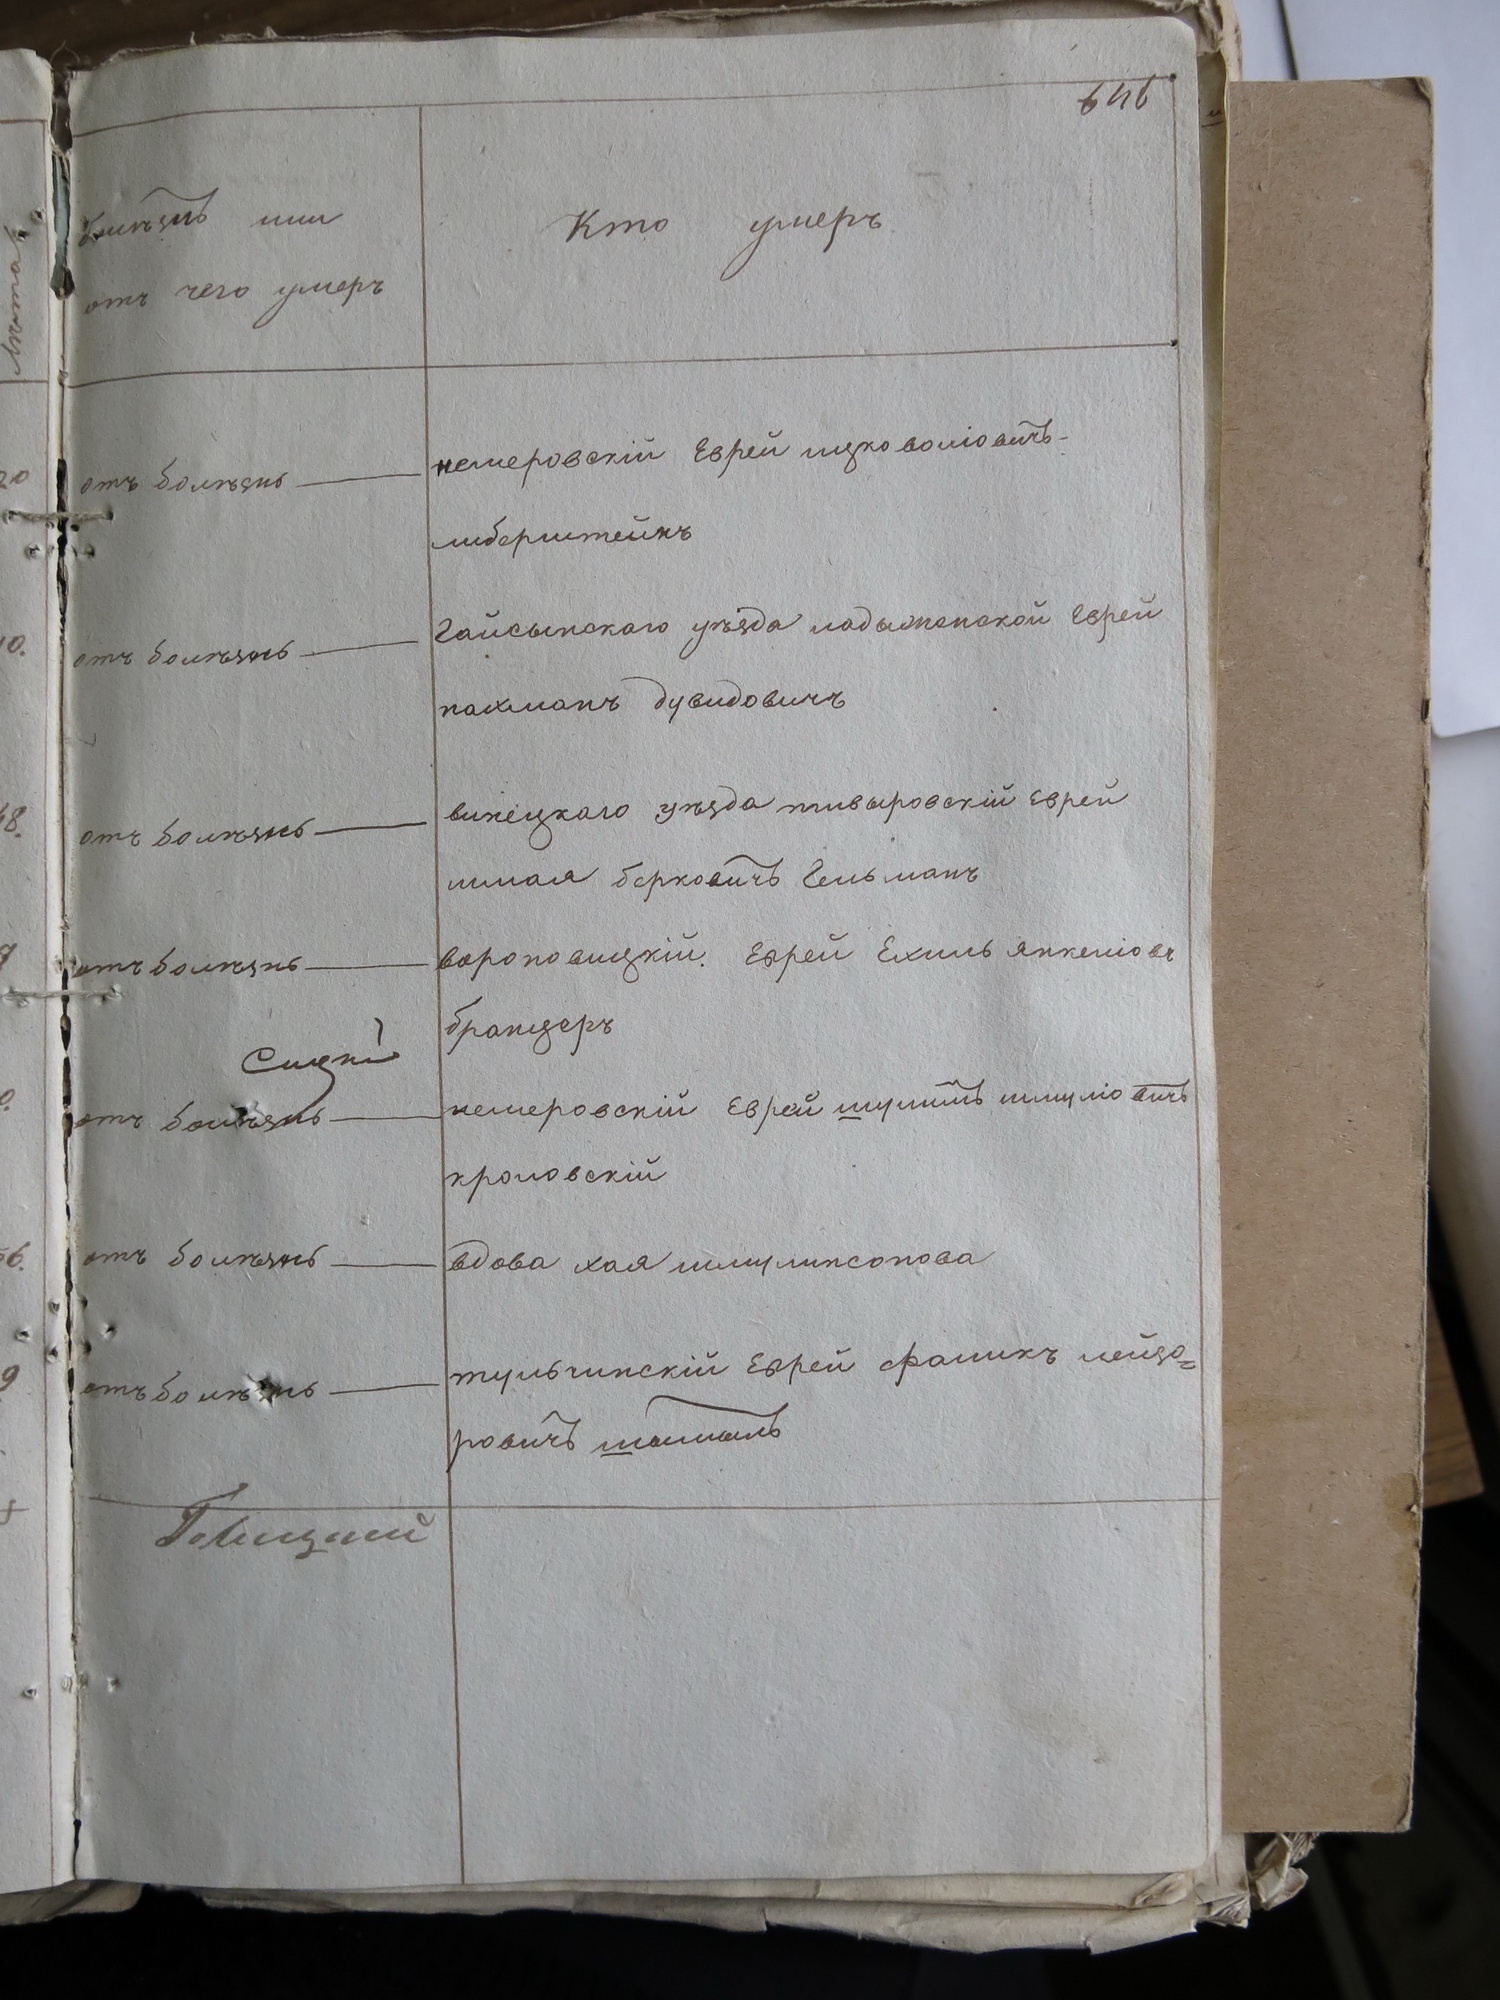 646
болѣзнь или
отъ чего умеръ
Кто умеръ
отъ болѣзнь — немеровскій Еврей ицко волiовичь-
либерштейнъ
отъ болѣзнь — Гайсынскаго уѣзда ладыженской Еврей
нахманъ дувидовичъ
отъ болѣзнь — винецкаго уѣзда тывыровскій Еврей
шмая берковичь Гельманъ
отъ болѣзнь — вороновицкій. Еврей Ехиль янкеліовъ
бранцеръ
отъ болѣзнь — немеровскій Еврей шулимъ шмуліовичъ
кроловскій
отъ болѣзнь — вдова хая шмулинсонова
отъ болѣзнь — тульчинскій Еврей фаликъ лейзо=
ровичь